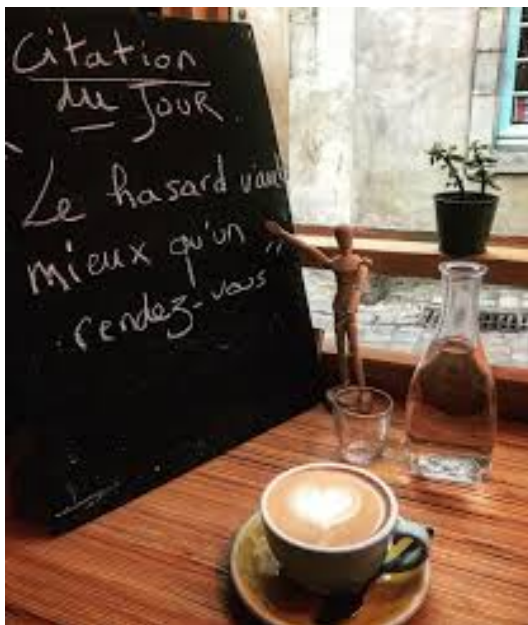 Citation
du JOUR
Le hasard vaut
mieux qu'un
rendez-vous